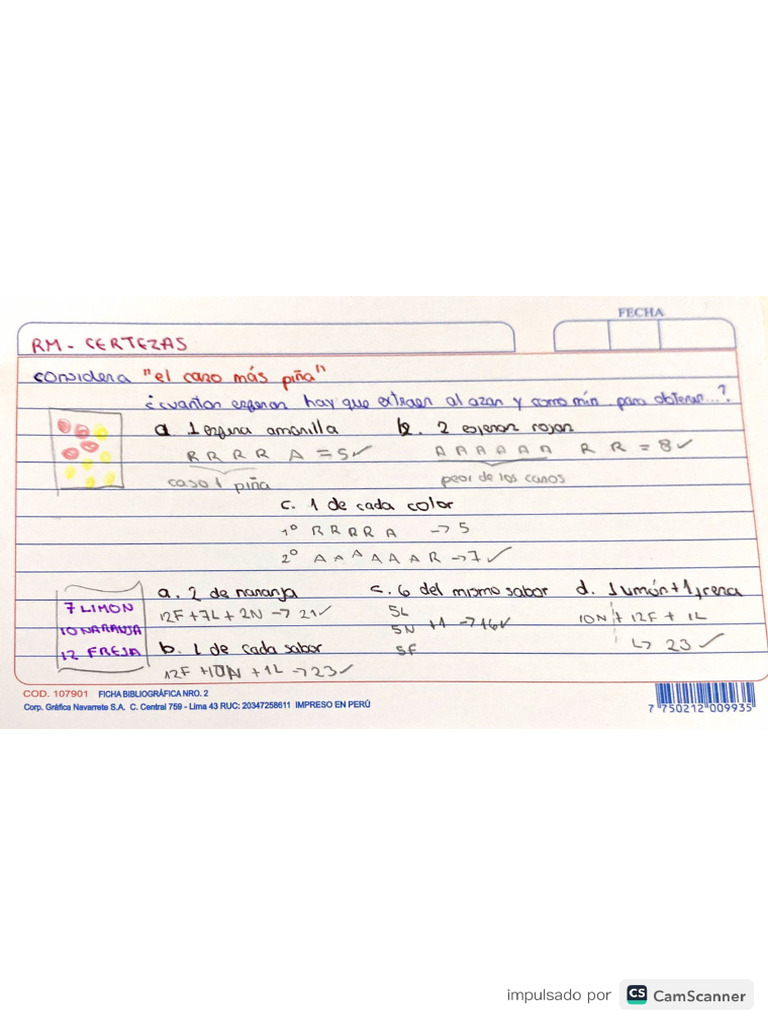 FECHA
RM - CERTEZAS
considera "el caso más piña"
¿cuantas esferas hay que extraer al azar y como mín. para obtener...?
a. 1 esfera amarilla b. 2 esferas rojas
R R R R A = 5 ✓ A A A A A A R R = 8 ✓
caso + piña peor de los casos
c. 1 de cada color
1° R R R R A → 5
2° A A A A A A R → 7 ✓
7 LIMON
10 NARANJA
12 FRESA
a. 2 de naranja c. 6 del mismo sabor d. 1 limón + 1 fresa
12F + 7L + 2N → 21 ✓ 5L 5N 5F +1 → 16 ✓ 10N + 12F + 1L
b. 1 de cada sabor ↳ 23 ✓
12F + 10N + 1L → 23 ✓
COD. 107901 FICHA BIBLIOGRÁFICA NRO. 2
Corp. Gráfica Navarrete S.A. C. Central 759 - Lima 43 RUC: 20347258611 IMPRESO EN PERÚ
7 750212 009935
impulsado por CS CamScanner